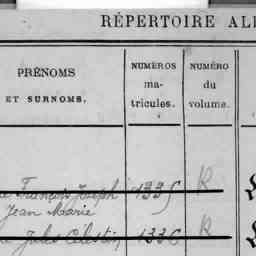 RÉPERTOIRE AL
PRÉNOMS
ET SURNOMS.
NUMÉROS
ma-
tricules.
NUMÉRO
du
volume.
François Joseph 1335 R
Jean Marie
Jules Célestin 1336 R